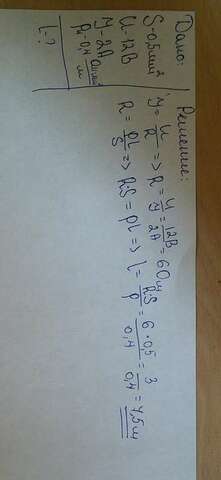 Дано:
S-0,5мм²
U-12В
У-2А
ρ-0,4 Ом·мм²/м
l-?
Решение:
У=U/R => R=U/У=12В/2А=6Ом
R=ρl/S => R·S=ρl => l=R·S/ρ=6·0,5/0,4=3/0,4=7,5м